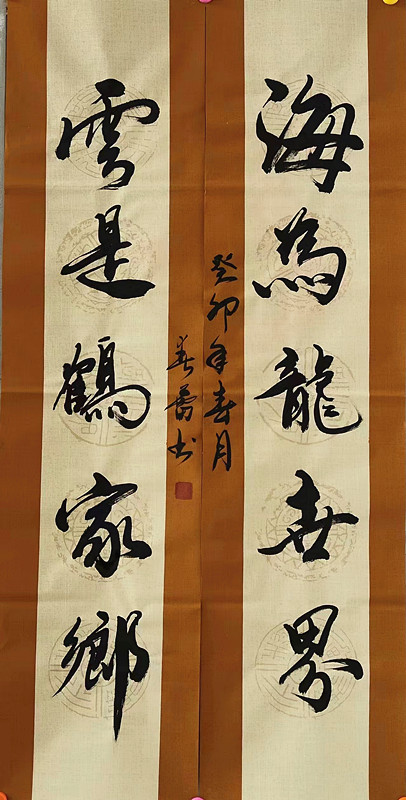 海為龍世界
雲是鶴家鄉
癸卯年春月
春蕾书